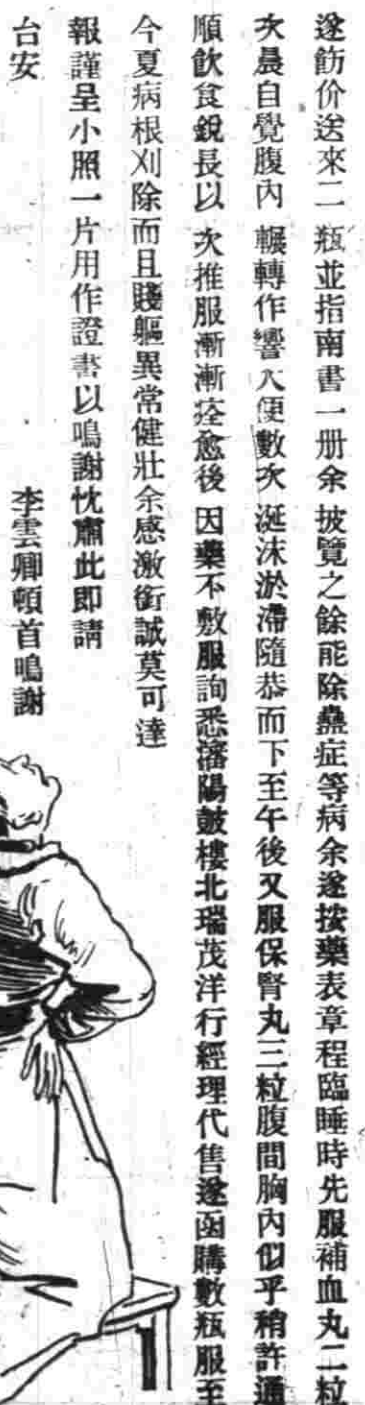 遂飭价送來二瓶並指南書一册余披覽之餘能除蠱症等病余遂按藥表章程臨睡時先服補血丸二粒
次晨自覺腹內輾轉作響大便數次涎沫淤滯隨恭而下至午後又服保腎丸三粒腹間胸內似乎稍許通
順飲食銳長以次推服漸漸痊愈後因藥不敷服詢悉瀋陽鼓樓北瑞茂洋行經理代售遂函購數瓶服至
今夏病根刈除而且賤軀異常健壯余感激銜誠莫可達
報謹呈小照一片用作證書以鳴謝忱肅此即請
台安
李雲卿頓首鳴謝